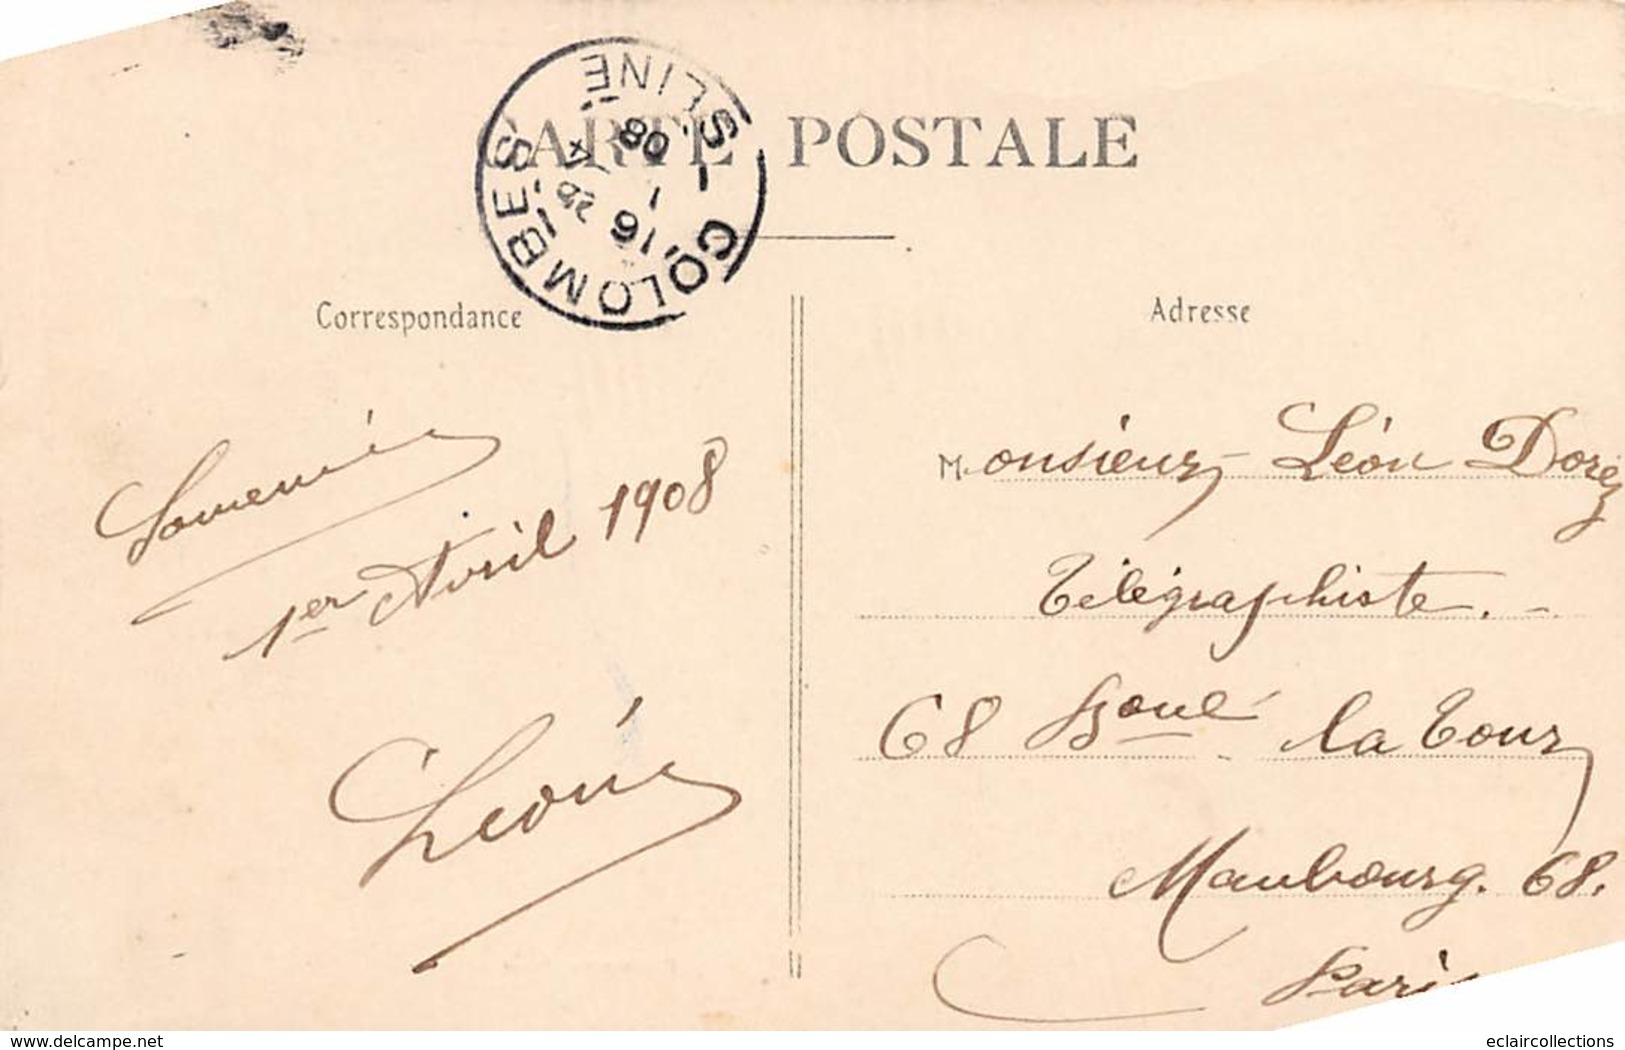 CARTE POSTALE
COLOMBES - S.
16
08
Correspondance
Souvenir
1er Avril 1908
Léon
Adresse
Monsieur Léon Dorez
Télégraphiste.
68 Boul la Tour
Maubourg. 68.
Paris
delcampe.net
eclaircollections